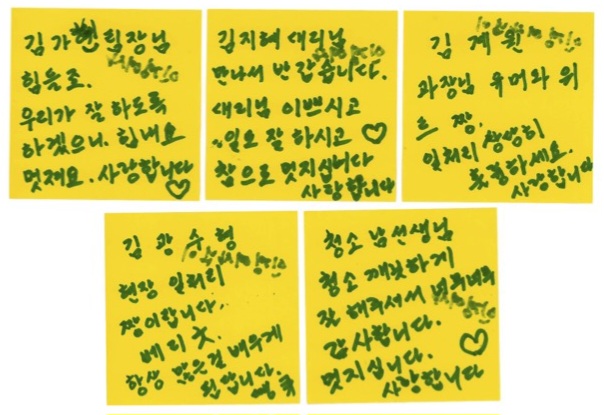 김가현 팀장님
힘들죠.
우리가 잘 하도록
하겠으니. 힘내요
멋져요. 사랑합니다
김지혜 대리님
만나서 반갑습니다.
대리님 이쁘시고
일도 잘 하시고
참으로 멋지십니다
사랑합니다
김계원
과장님 유머와 위
트 짱.
일처리 상상히
훌륭하세요.
사랑합니다
김광수 형
현장 일처리
짱이합니다.
베리 굿.
항상 많은걸 배우게
됩니다.
청소 남선생님
청소 깨끗하게
잘 해주셔서 너무너무
감사합니다.
멋지십니다.
사랑합니다